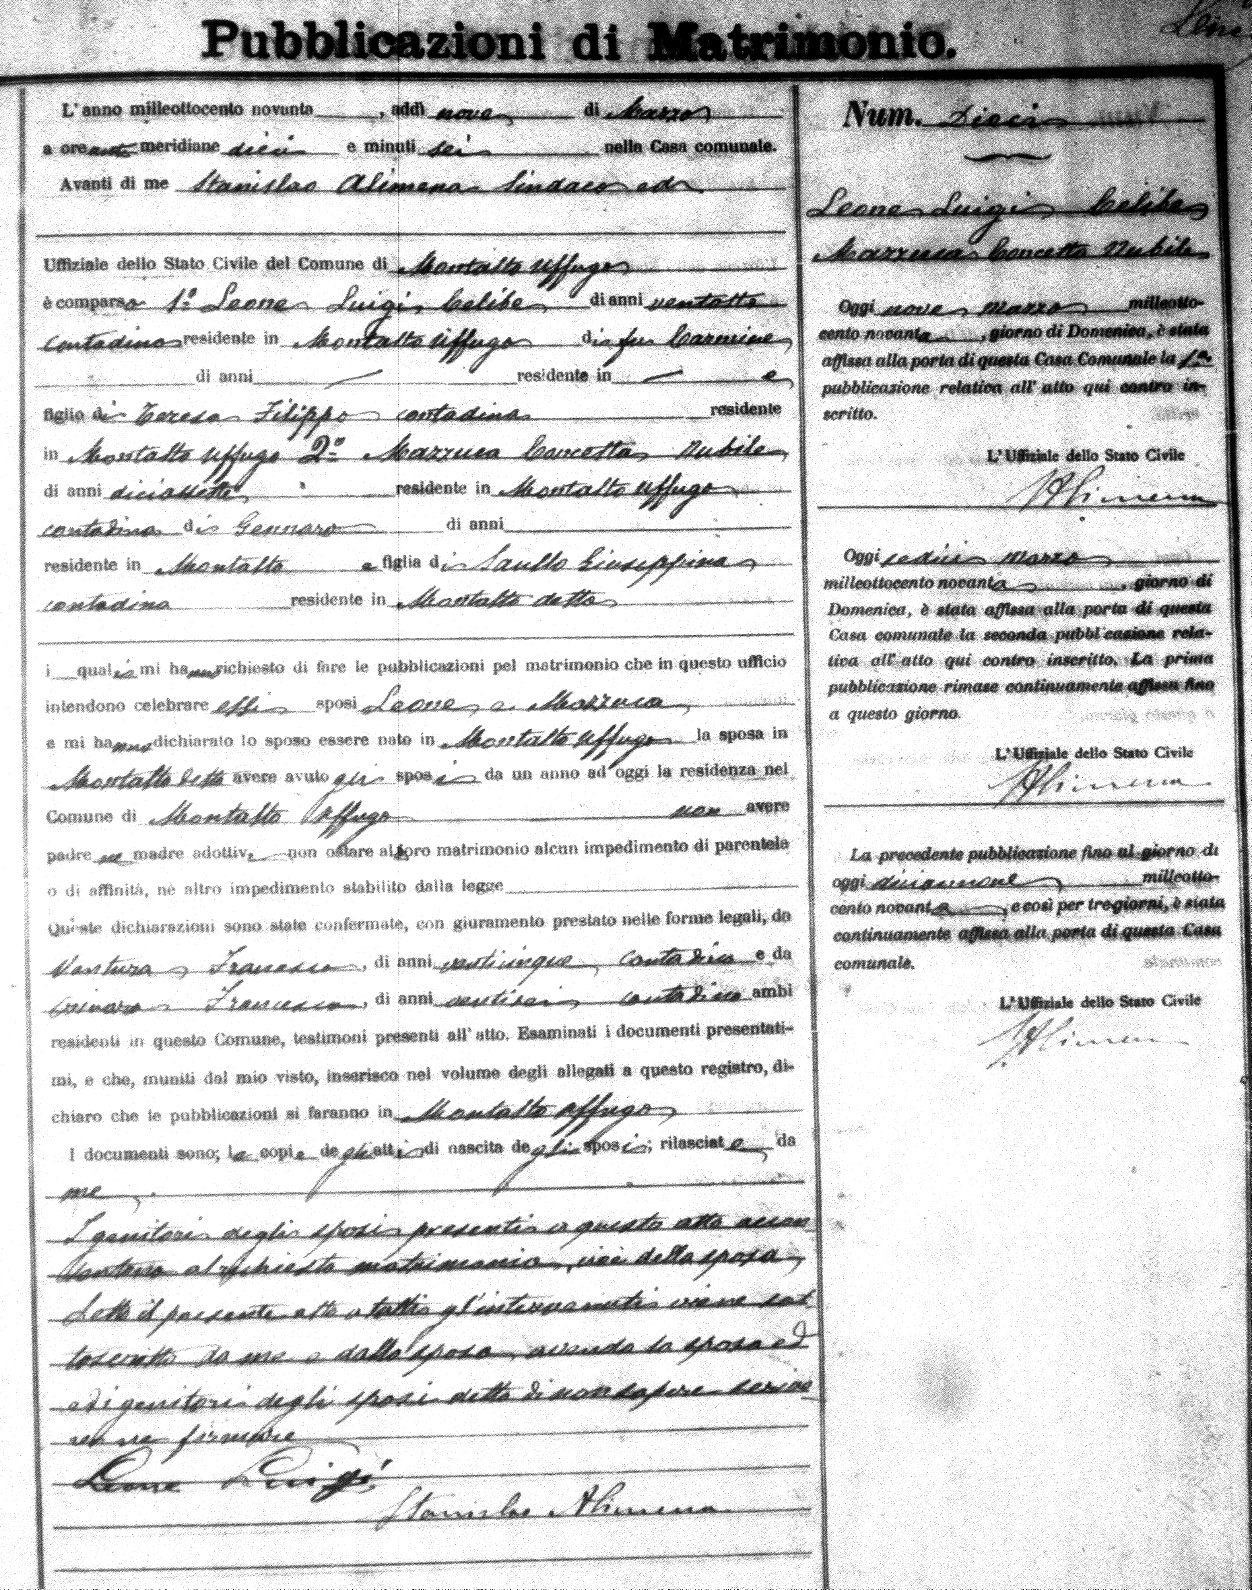 Pubblicazioni di Matrimonio.
L'anno milleottocento novanta, addì nove di Marzo
a ore anti meridiane dieci e minuti sei nella Casa comunale.
Avanti di me Stanislao Alimena Sindaco ed
Uffiziale dello Stato Civile del Comune di Montalto Uffugo
è comparso 1º Leone Luigi Celibe di anni ventotto
contadino residente in Montalto Uffugo di fu Carmine
di anni residente in e
figlio di Teresa Filippo contadina residente
in Montalto Uffugo 2º Mazzuca Concetta Nubile
di anni diciassette residente in Montalto Uffugo
contadina di Gennaro di anni
residente in Montalto e figlia di Saullo Giuseppina
contadina residente in Montalto detto
i quali mi hanno richiesto di fare le pubblicazioni pel matrimonio che in questo ufficio
intendono celebrare essi sposi Leone e Mazzuca
e mi hanno dichiarato lo sposo essere nato in Montalto Uffugo la sposa in
Montalto detto avere avuto gli sposi da un anno ad oggi la residenza nel
Comune di Montalto Uffugo non avere
padre ne madre adottivi non ostare al loro matrimonio alcun impedimento di parentela
o di affinità, nè altro impedimento stabilito dalla legge
Queste dichiarazioni sono state confermate, con giuramento prestato nelle forme legali, da
Ventura Francesco, di anni venticinque contadino e da
Francesco, di anni ventisei contadino ambi
residenti in questo Comune, testimoni presenti all'atto. Esaminati i documenti presentati-
mi, e che, muniti dal mio visto, inserisco nel volume degli allegati a questo registro, di-
chiaro che le pubblicazioni si faranno in Montalto Uffugo
I documenti sono; le copie degli atti di nascita degli sposi; rilasciate da
me
I genitori degli sposi presenti a questo atto accon
sentono al richiesto matrimonio, cioè della sposa
Letto il presente atto a tutti gl'intervenuti viene sot
toscritto da me e dallo sposo, avendo la sposa ed
ed i genitori degli sposi detto di non sapere scrive
re ne firmare
Leone Luigi
Stanislao Alimena
Num. Dieci
Leone Luigi Celibe
Mazzuca Concetta Nubile
Oggi nove marzo milleotto-
cento novanta, giorno di Domenica, è stata
affissa alla porta di questa Casa Comunale la 1ª
pubblicazione relativa all'atto qui contro in-
scritto.
L'Uffiziale dello Stato Civile
S Alimena
Oggi sedici marzo
milleottocento novanta, giorno di
Domenica, è stata affissa alla porta di questa
Casa comunale la seconda pubblicazione rela-
tiva all'atto qui contro inscritto. La prima
pubblicazione rimase continuamente affissa fino
a questo giorno.
L'Uffiziale dello Stato Civile
S Alimena
La precedente pubblicazione fino al giorno di
oggi diciannove milleotto-
cento novanta e così per tre giorni, è stata
continuamente affissa alla porta di questa Casa
comunale.
L'Uffiziale dello Stato Civile
S Alimena